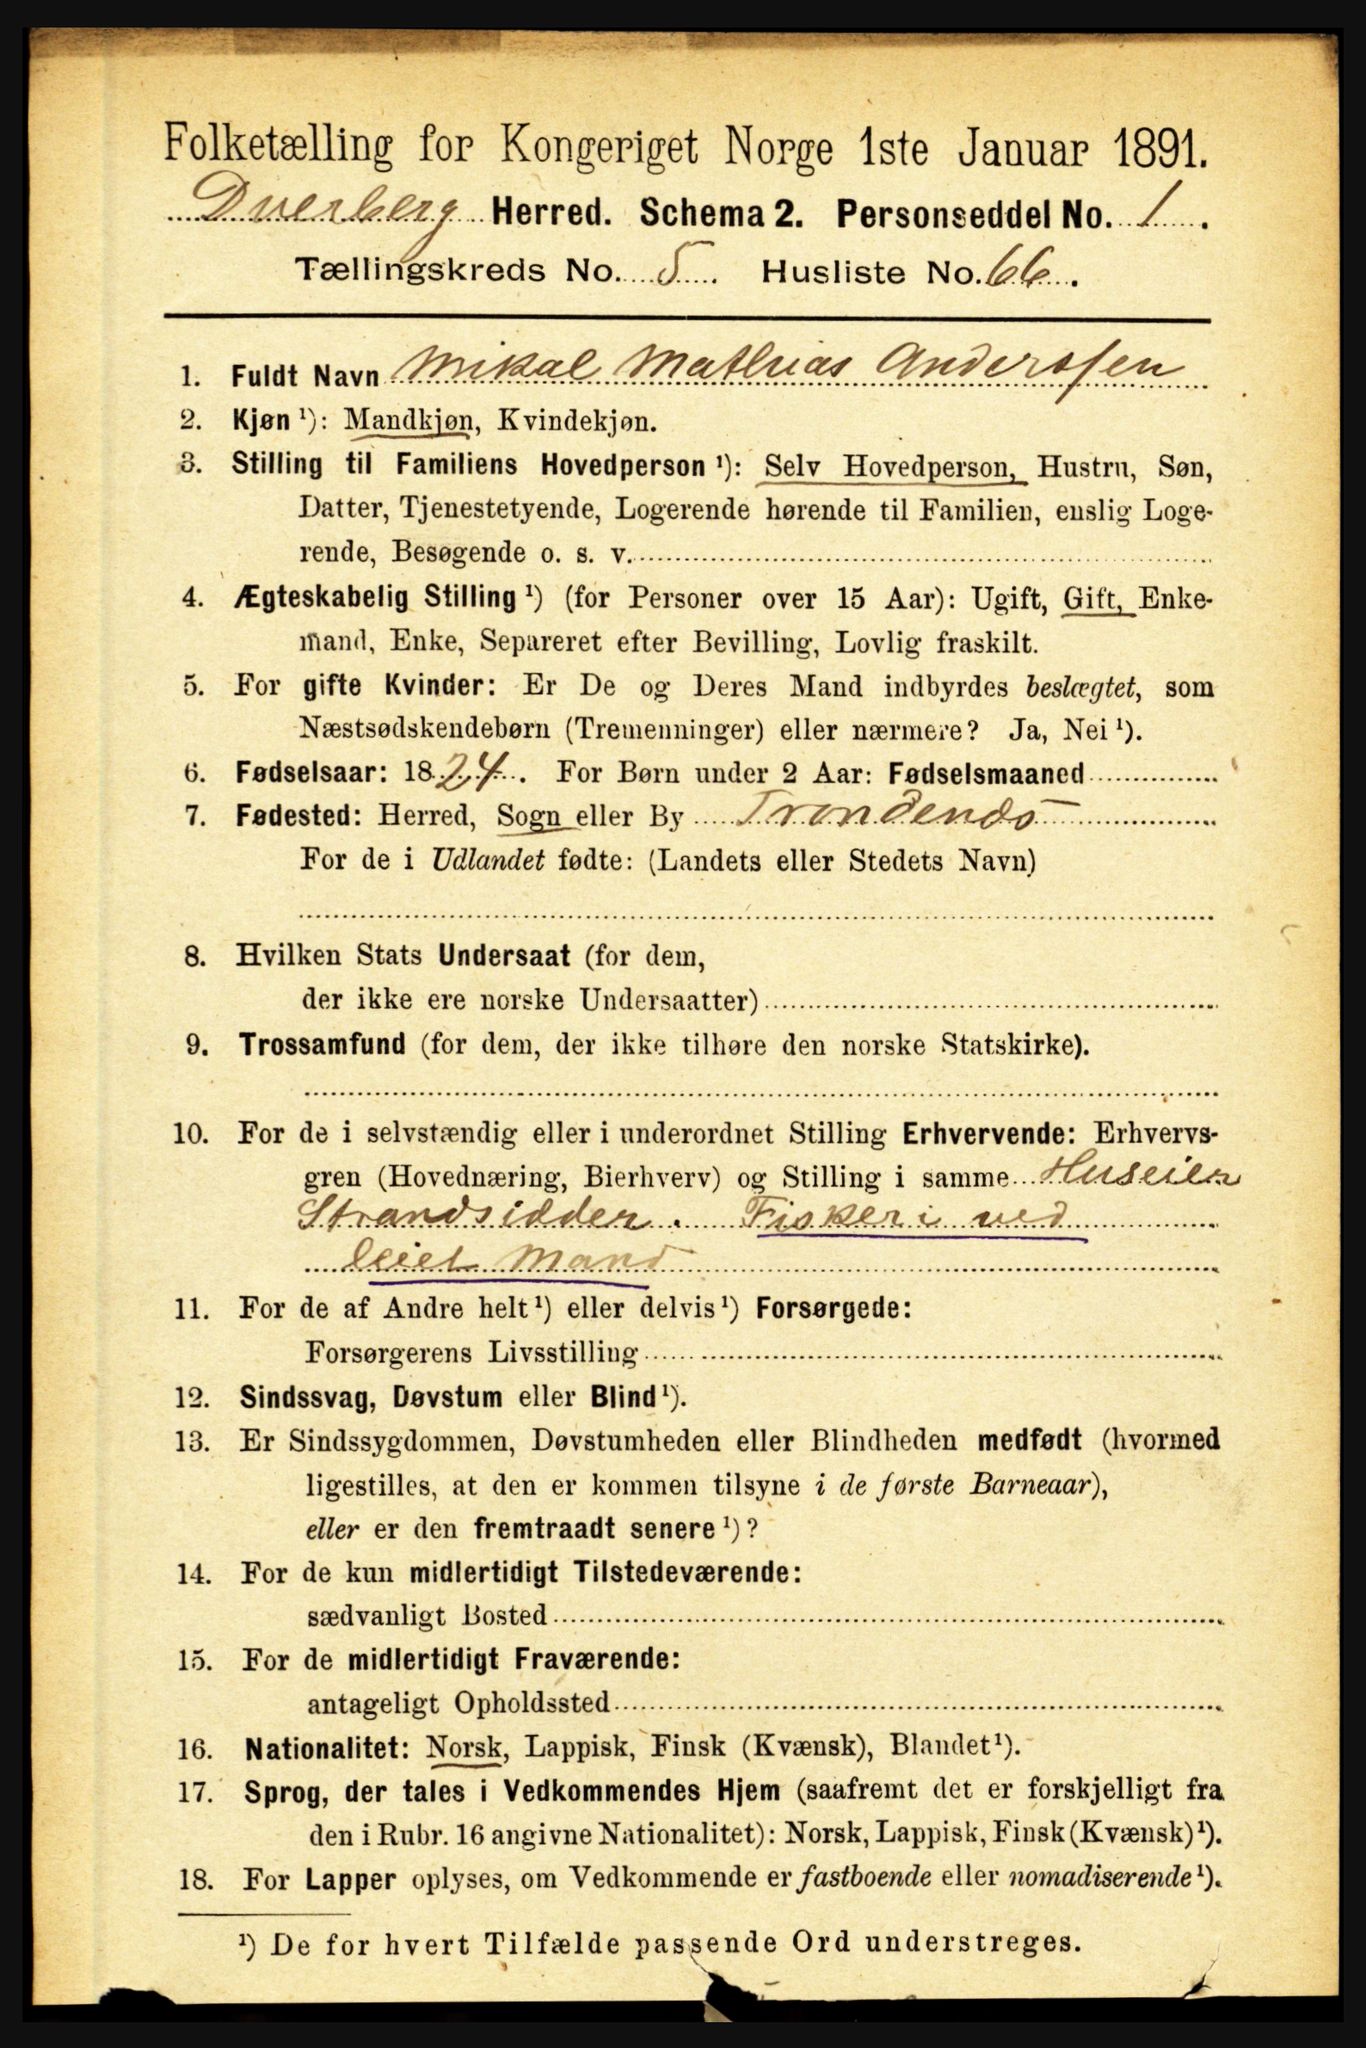 Folketælling for Kongeriget Norge 1ste Januar 1891.
Dverberg Herred. Schema 2. Personseddel No. 1.
Tællingskreds No. 5. Husliste No. 66.
1. Fuldt Navn Mikal Mathias Andersen
2. Kjøn ¹): Mandkjøn, Kvindekjøn.
3. Stilling til Familiens Hovedperson ¹): Selv Hovedperson, Hustru, Søn,
Datter, Tjenestetyende, Logerende hørende til Familien, enslig Loge-
rende, Besøgende o. s. v.
4. Ægteskabelig Stilling ¹) (for Personer over 15 Aar): Ugift, Gift, Enke-
mand, Enke, Separeret efter Bevilling, Lovlig fraskilt.
5. For gifte Kvinder: Er De og Deres Mand indbyrdes beslægtet, som
Næstsødskendebørn (Tremenninger) eller nærmere? Ja, Nei ¹).
6. Fødselsaar: 1824. For Børn under 2 Aar: Fødselsmaaned
7. Fødested: Herred, Sogn eller By Trondenæs
For de i Udlandet fødte: (Landets eller Stedets Navn)
8. Hvilken Stats Undersaat (for dem,
der ikke ere norske Undersaatter)
9. Trossamfund (for dem, der ikke tilhøre den norske Statskirke).
10. For de i selvstændig eller i underordnet Stilling Erhvervende: Erhvervs-
gren (Hovednæring, Bierhverv) og Stilling i samme Huseier
Strandsidder. Fiskeri ved
leiet Mand
11. For de af Andre helt ¹) eller delvis ¹) Forsørgede:
Forsørgerens Livsstilling
12. Sindssvag, Døvstum eller Blind ¹).
13. Er Sindssygdommen, Døvstumheden eller Blindheden medfødt (hvormed
ligestilles, at den er kommen tilsyne i de første Barneaar),
eller er den fremtraadt senere ¹)?
14. For de kun midlertidigt Tilstedeværende:
sædvanligt Bosted
15. For de midlertidigt Fraværende:
antageligt Opholdssted
16. Nationalitet: Norsk, Lappisk, Finsk (Kvænsk), Blandet ¹).
17. Sprog, der tales i Vedkommendes Hjem (saafremt det er forskjelligt fra
den i Rubr. 16 angivne Nationalitet): Norsk, Lappisk, Finsk (Kvænsk) ¹).
18. For Lapper oplyses, om Vedkommende er fastboende eller nomadiserende ¹).
¹) De for hvert Tilfælde passende Ord understreges.